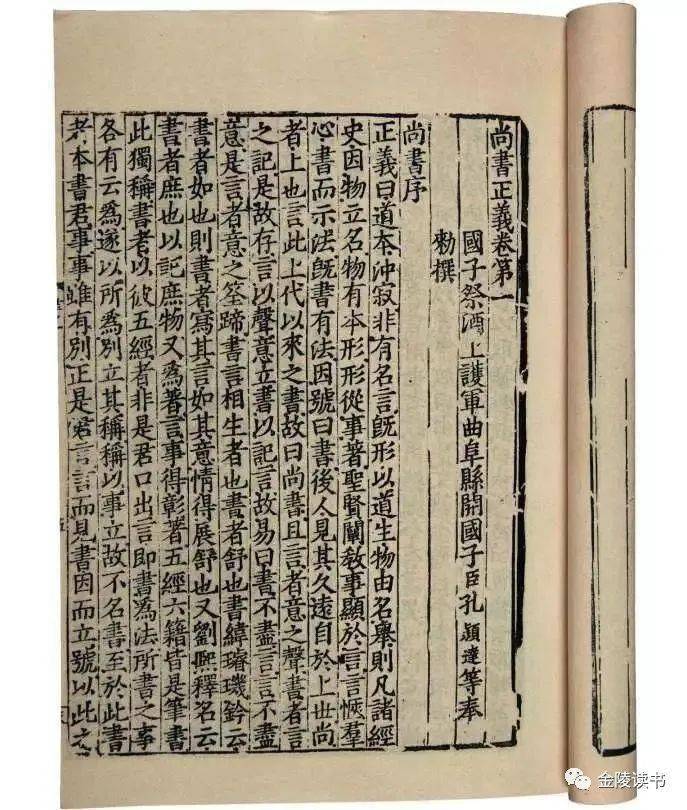 尚書正義卷第一
國子祭酒上護軍曲阜縣開國子臣孔穎達等奉
勑撰
尚書序
正義曰道本沖寂非有名言旣形以道生物由名舉則凡諸經
史因物立名物有本形形從事著聖賢闡敎事顯於言言愜羣
心書而示法旣書有法因號曰書後人見其久遠自於上世尚
者上也言此上代以來之書故曰尚書且言者意之聲書者言
之記是故存言以聲意立書以記言故易曰書不盡言言不盡
意是言者意之筌蹄書言相生者也書者舒也書緯璿璣鈐云
書者如也則書者寫其言如其意情得展舒也又劉熙釋名云
書者庶也以記庶物又爲著言事得彰著五經六籍皆是筆書
此獨稱書者以彼五經者非是君口出言即書爲法所書之事
各有云爲遂以所爲別立其稱稱以事立故不名書至於此書
者本書君事事雖有別正是君言言而見書因而立號以此之
金陵读书